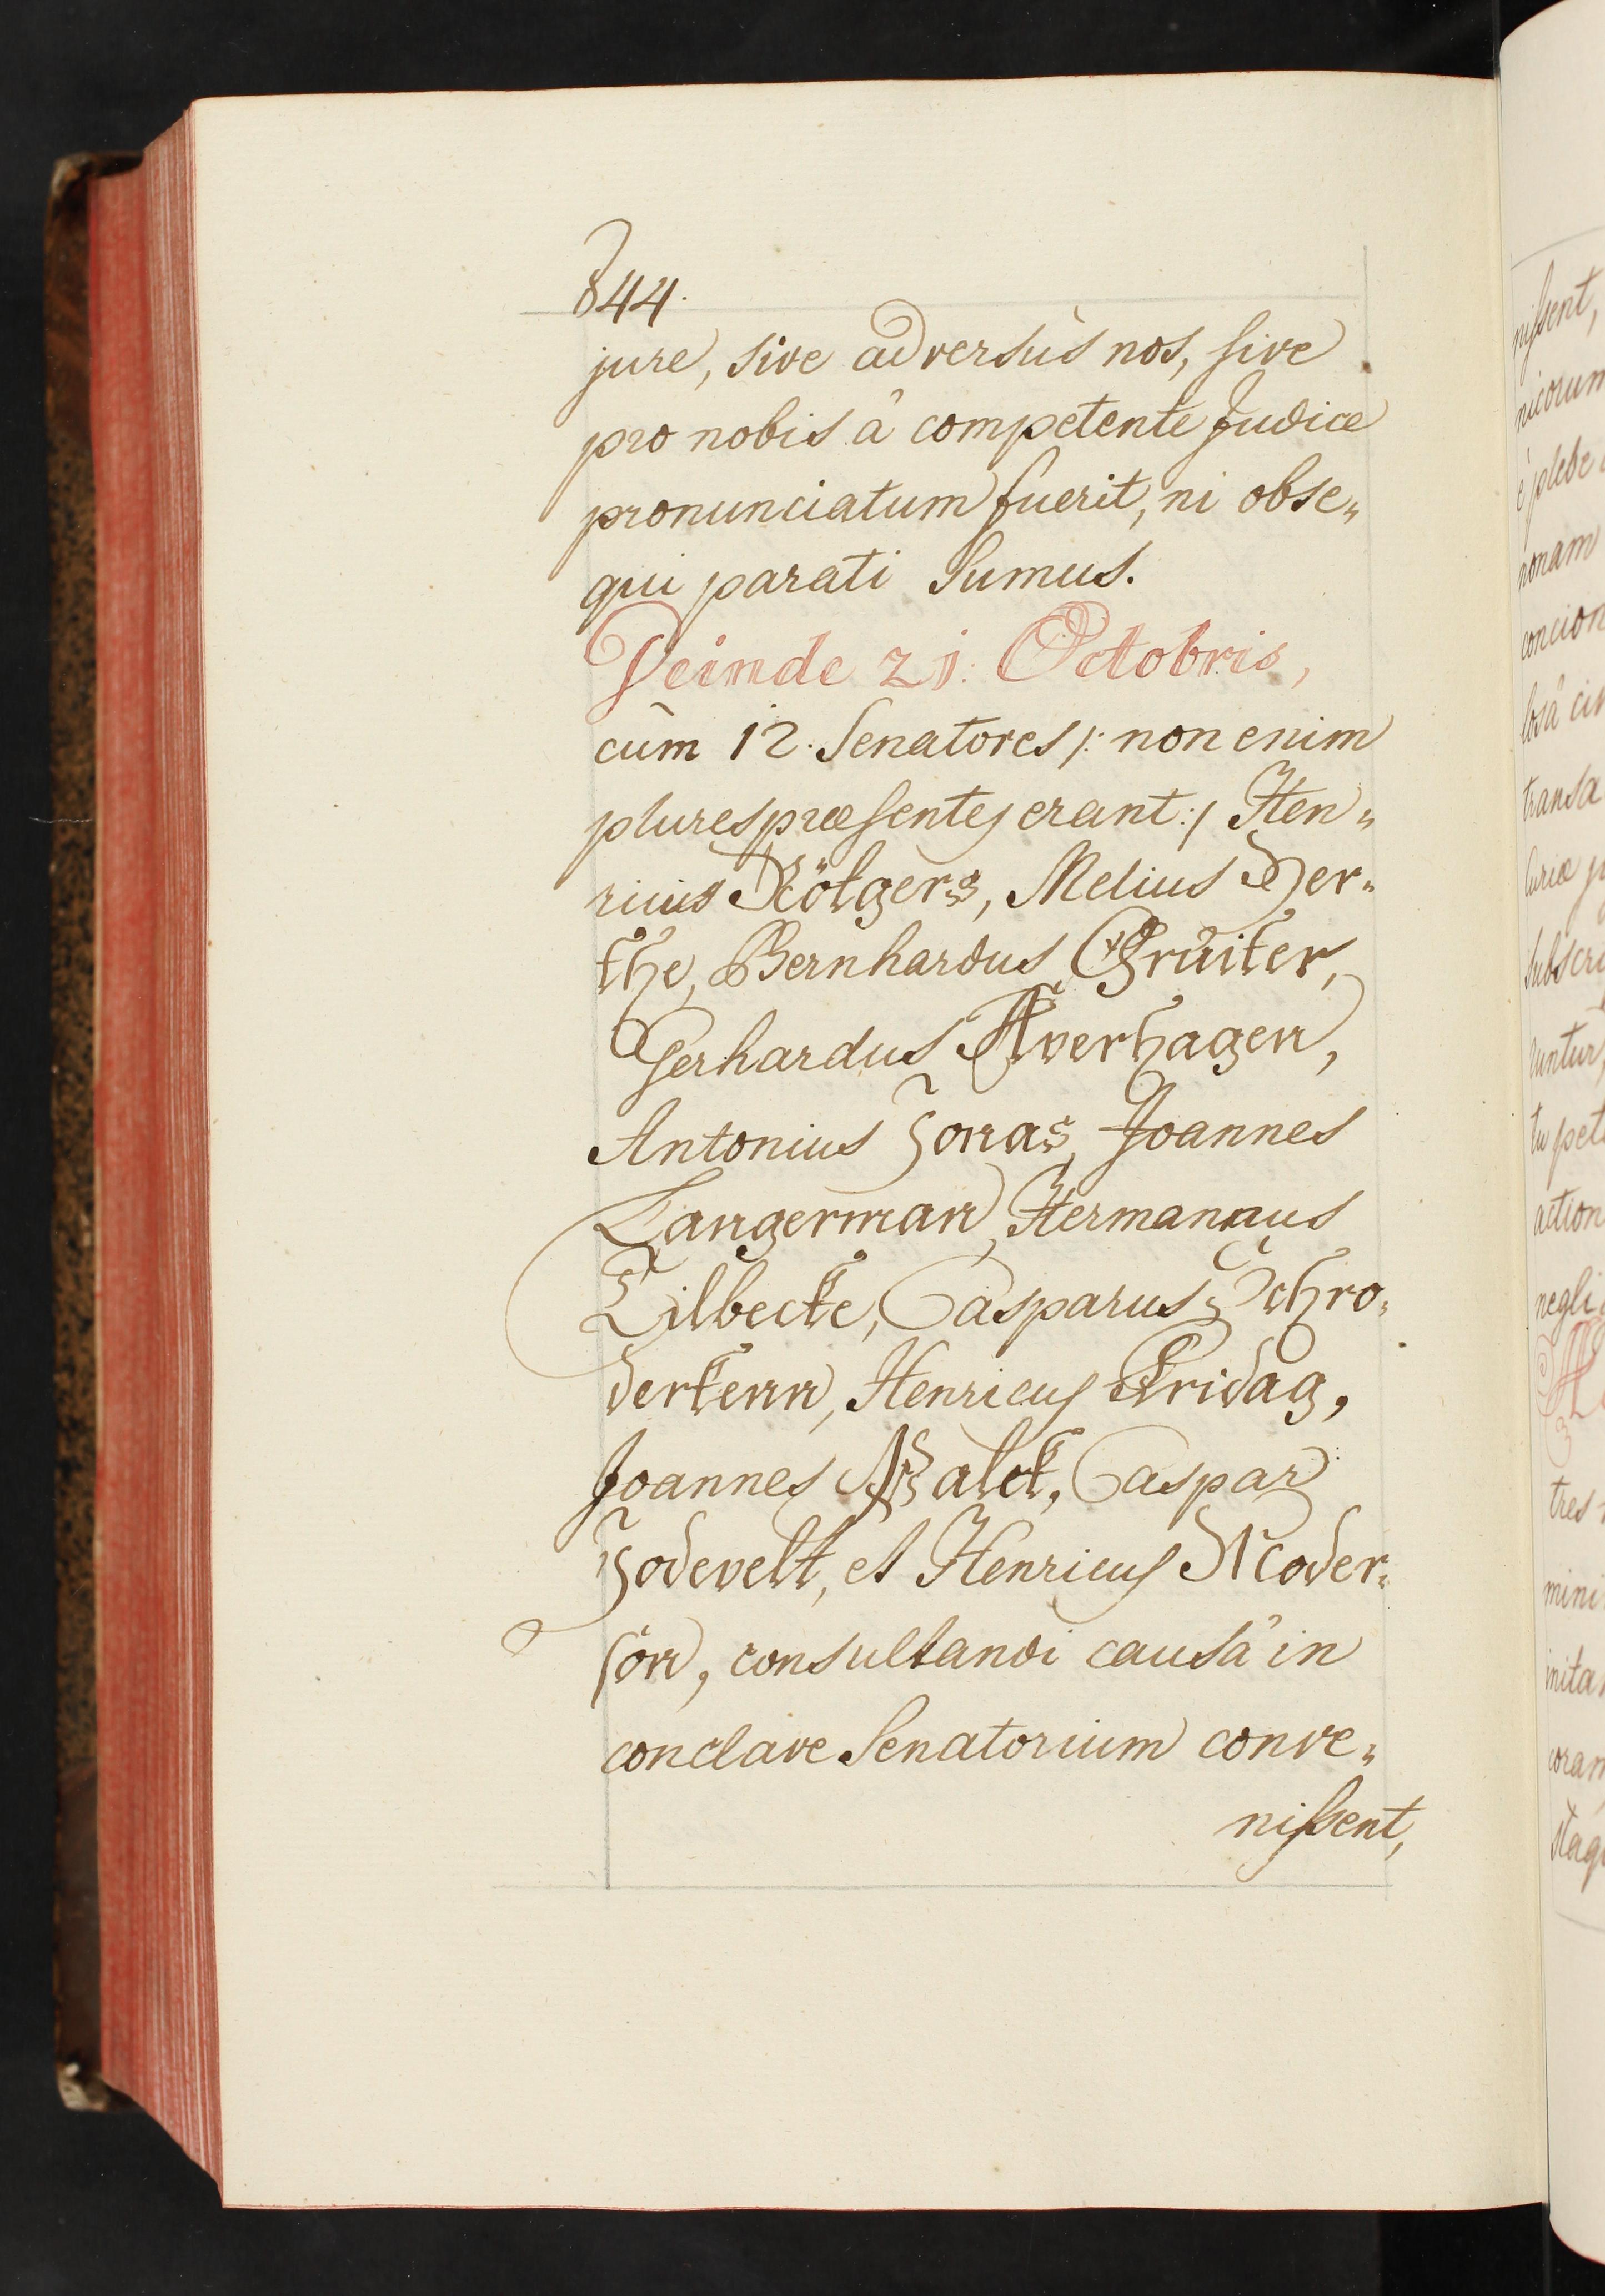 844.
jure, sive adversùs nos, sive
pro nobis â competente Judice
pronunciatum fuerit, ni obse„
qui parati sumus.
Deinde 21. Octobris,
cûm 12. Senatores /: non enim
plures præsentes erant :/ Hen„
ricus Rötgers, Melius Her„
the, Bernhardus Grüiter,
Gerhardus Averhagen,
Antonius Jonas, Joannes
Langerman, Hermannus
Tilbecke, Casparus Schro„
derkenn, Henricus Fridag,
Joannes Palck, Caspar
Jodevelt, et Henricus Moder„
sön, consultandi causâ in
conclave Senatorium conve„
nissent,
nissent,
nicorum
è plebe
nonam
transa
Curiæ
subscri
untur,
tu pet
action
negli
tres
mini
inita
coram